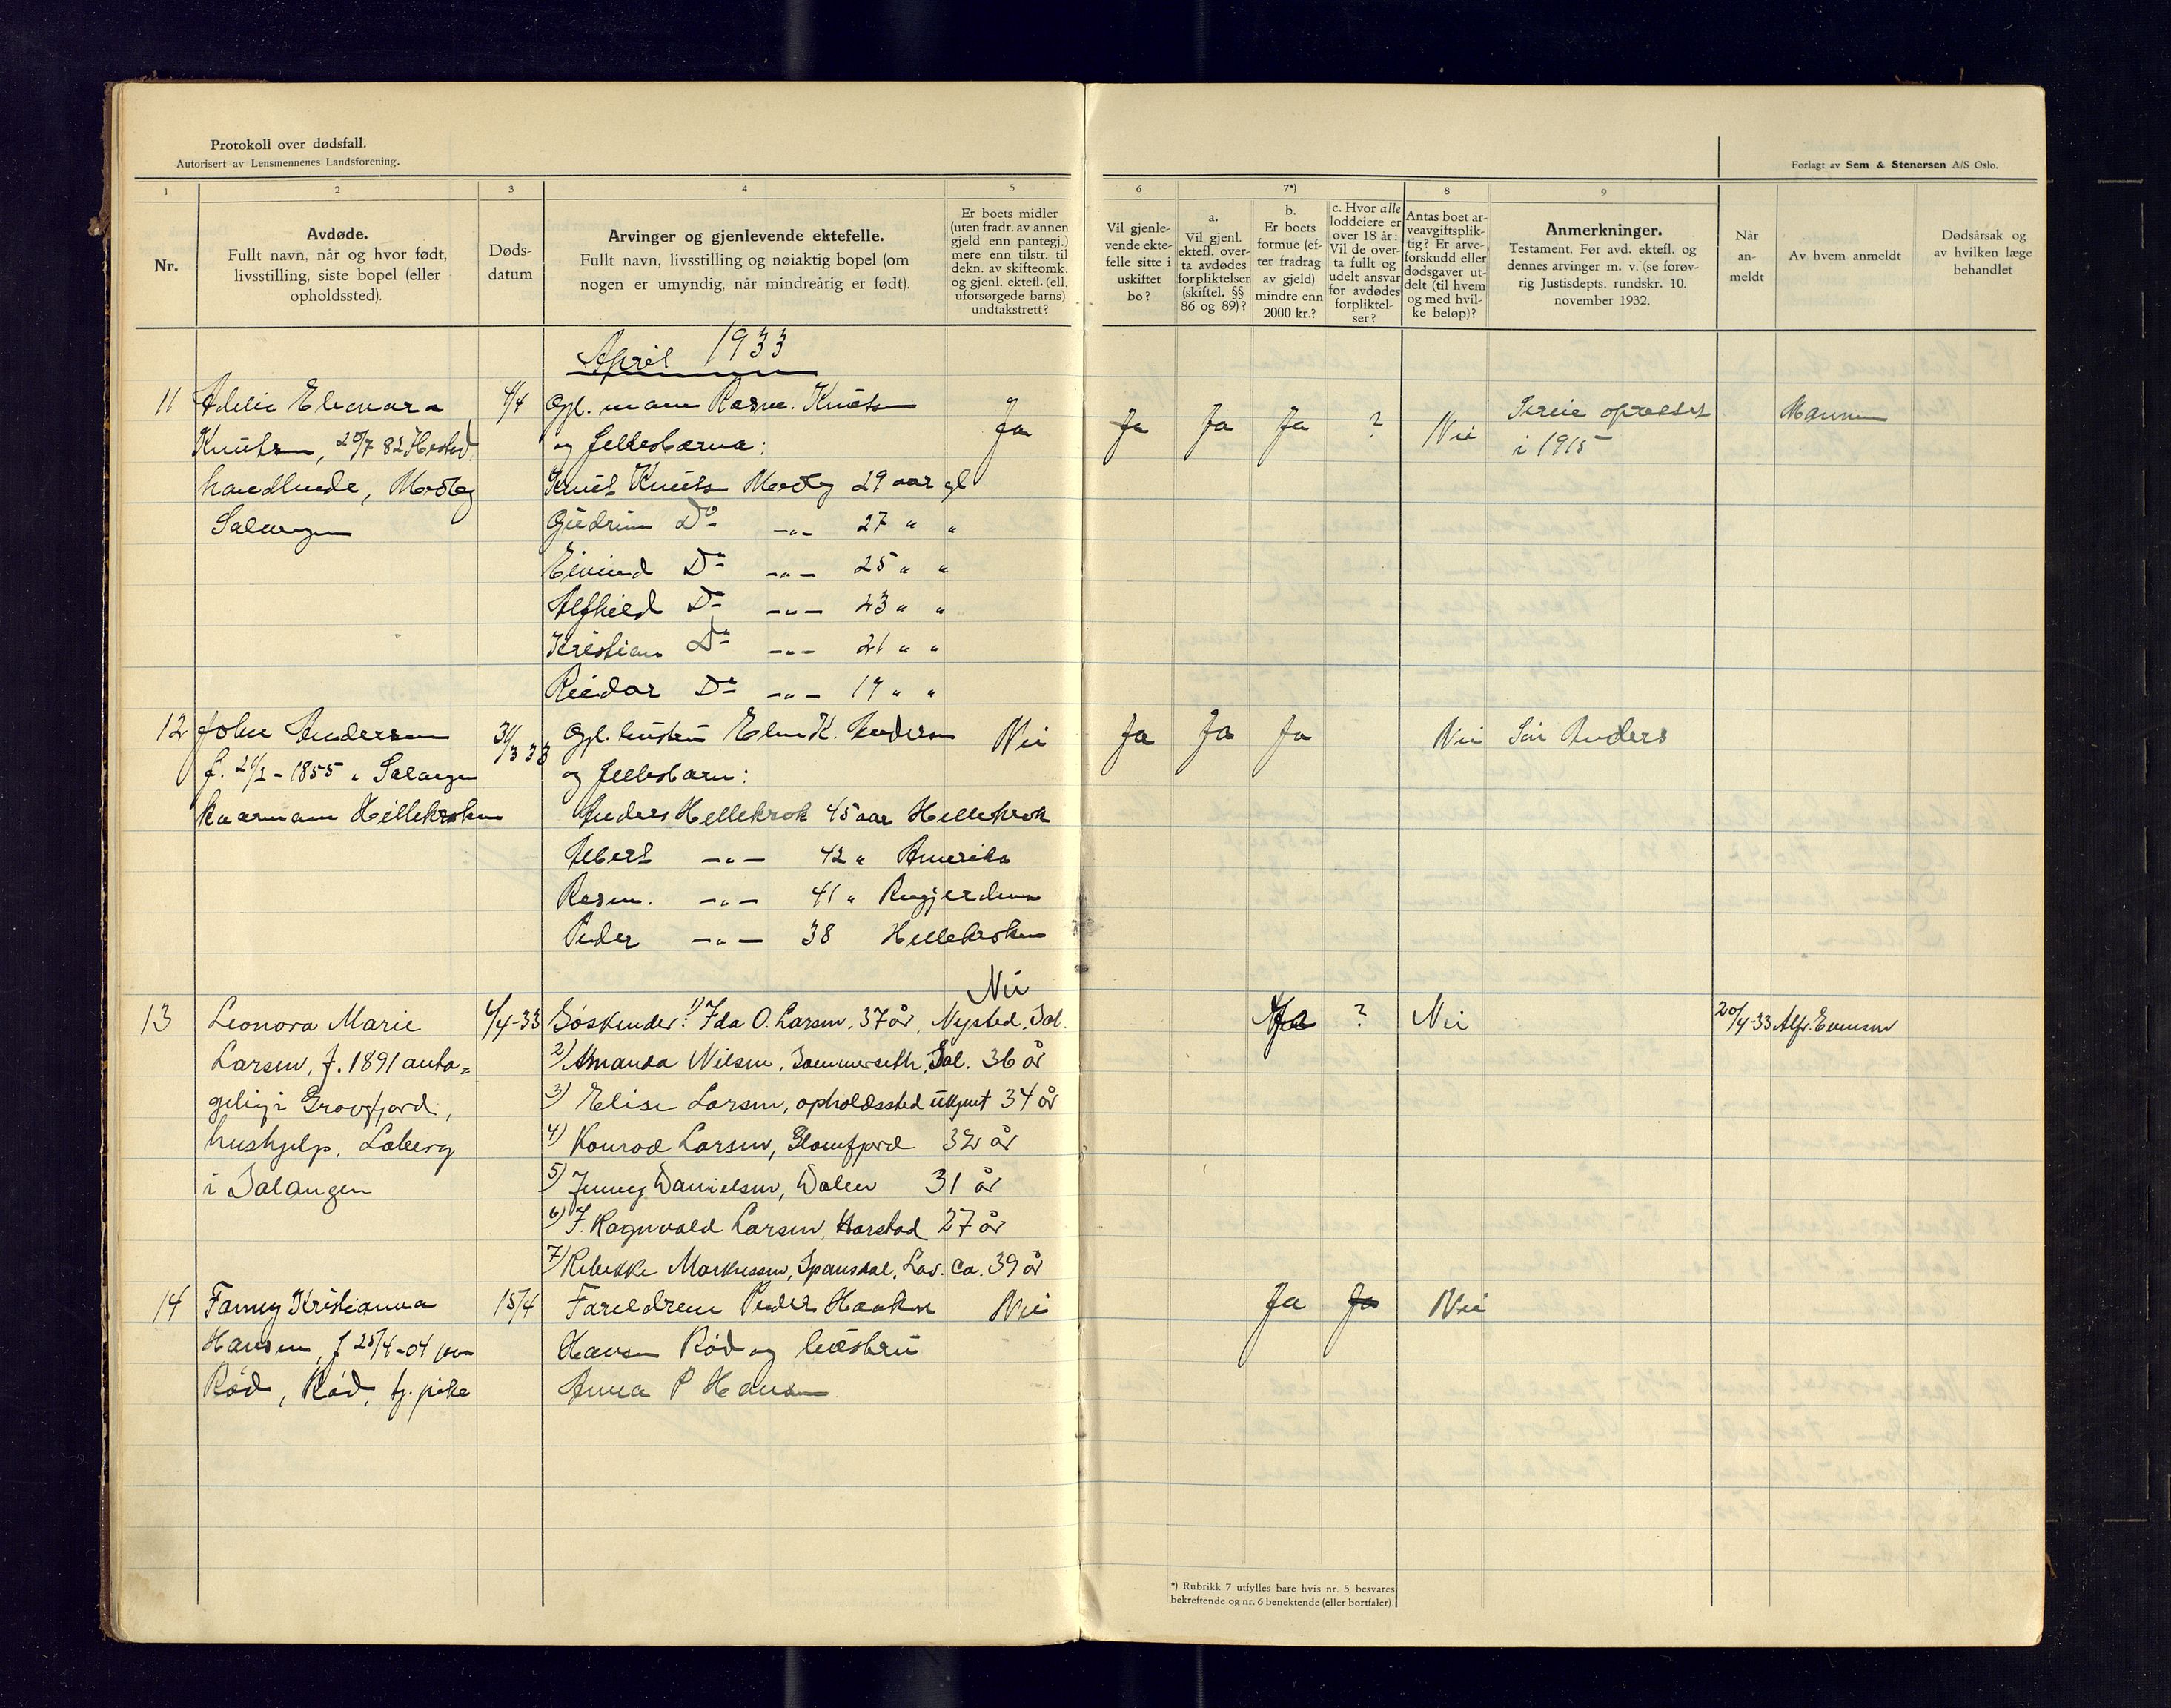 Protokoll over dødsfall.
Autorisert av Lensmennenes Landsforening.
Forlagt av Sem & Stenersen A/S Oslo.
1
Nr.
2
Avdøde.
Fullt navn, når og hvor født,
livsstilling, siste bopel (eller
opholdssted).
3
Døds-
datum
4
Arvinger og gjenlevende ektefelle.
Fullt navn, livsstilling og nøiaktig bopel (om
nogen er umyndig, når mindreårig er født).
5
Er boets midler
(uten fradr. av annen
gjeld enn pantegj.)
mere enn tilstr. til
dekn. av skifteomk.
og gjenl. ektefl. (ell.
uforsørgede barns)
undtakstrett?
6
Vil gjenle-
vende ekte-
felle sitte i
uskiftet
bo?
7*)
a.
Vil gjenl.
ektefl. over-
ta avdødes
forpliktelser
(skiftel. §§
86 og 89)?
b.
Er boets
formue (ef-
ter fradrag
av gjeld)
mindre enn
2000 kr.?
c. Hvor alle
loddeiere er
over 18 år:
Vil de over-
ta fullt og
udelt ansvar
for avdødes
forpliktel-
ser?
8
Antas boet ar-
veavgiftsplik-
tig? Er arve-
forskudd eller
dødsgaver ut-
delt (til hvem
og med hvil-
ke beløp)?
9
Anmerkninger.
Testament. Før avd. ektefl. og
dennes arvinger m. v. (se forøv-
rig Justisdepts. rundskr. 10.
november 1932.
Når
an-
meldt
Av hvem anmeldt
Dødsårsak og
av hvilken læge
behandlet
April 1933
11 Adelie Elenora 4/4 Gjl. mann Rasm. Knutsen Ja Ja Ja Ja ? Nei Skeie oprettet Mannen
Knutsen, 20/7 82 og fellesbarna: i 1915
Knut Knutsen 29 aar gl
Salangen Gudrun Do -"- 27 " "
Eivind Do -"- 25 " "
Alfhild Do -"- 23 " "
Kristian Do -"- 21 " "
Reidar Do -"- 19 " "
12 John Andersen 31/3 33 Gjl. hustru Elen K. Andersen Nei Ja Ja Ja Nei Søn Anders
f. - 1855 i Salangen og fellesbarn:
kaarmann Hellekroken Anders Hellekrok 45 aar Hellekrok
Albert -"- 42 " Amerika
Rasm. -"- 41 "
Peder -"- 38 Hellekroken
Nei
13 Leonora Marie 4/4-33 Søskender: 1) Ida O. Larsen, 37 år, Nysted, Sal. Ja ? Nei 20/4-33 Alfr. Evensen
Larsen, f. 1891 anta= 2) Amanda Nilsen, Sommerseth, Sal. 36 år
gelig i Grovfjord, 3) Elise Larsen, opholdssted ukjent 34 år
hushjelp, Laberg 4) Konrad Larsen, Glomfjord 32 år
i Salangen 5) Jenny Danielsen, Dalen 31 år
6) J. Ragnvald Larsen, Harstad 27 år
7) Rebekke Markussen, Spansdal, Lav. ca. 39 år
14 Fanny Kristianna 15/4 Foreldrene Peder Haakon Nei Ja Ja Nei
Hansen, f 25/4-04 paa Hansen Rød og hustru
Rød, Rød, tj. pike Anna P Hansen
*) Rubrikk 7 utfylles bare hvis nr. 5 besvares
bekreftende og nr. 6 benektende (eller bortfaler).